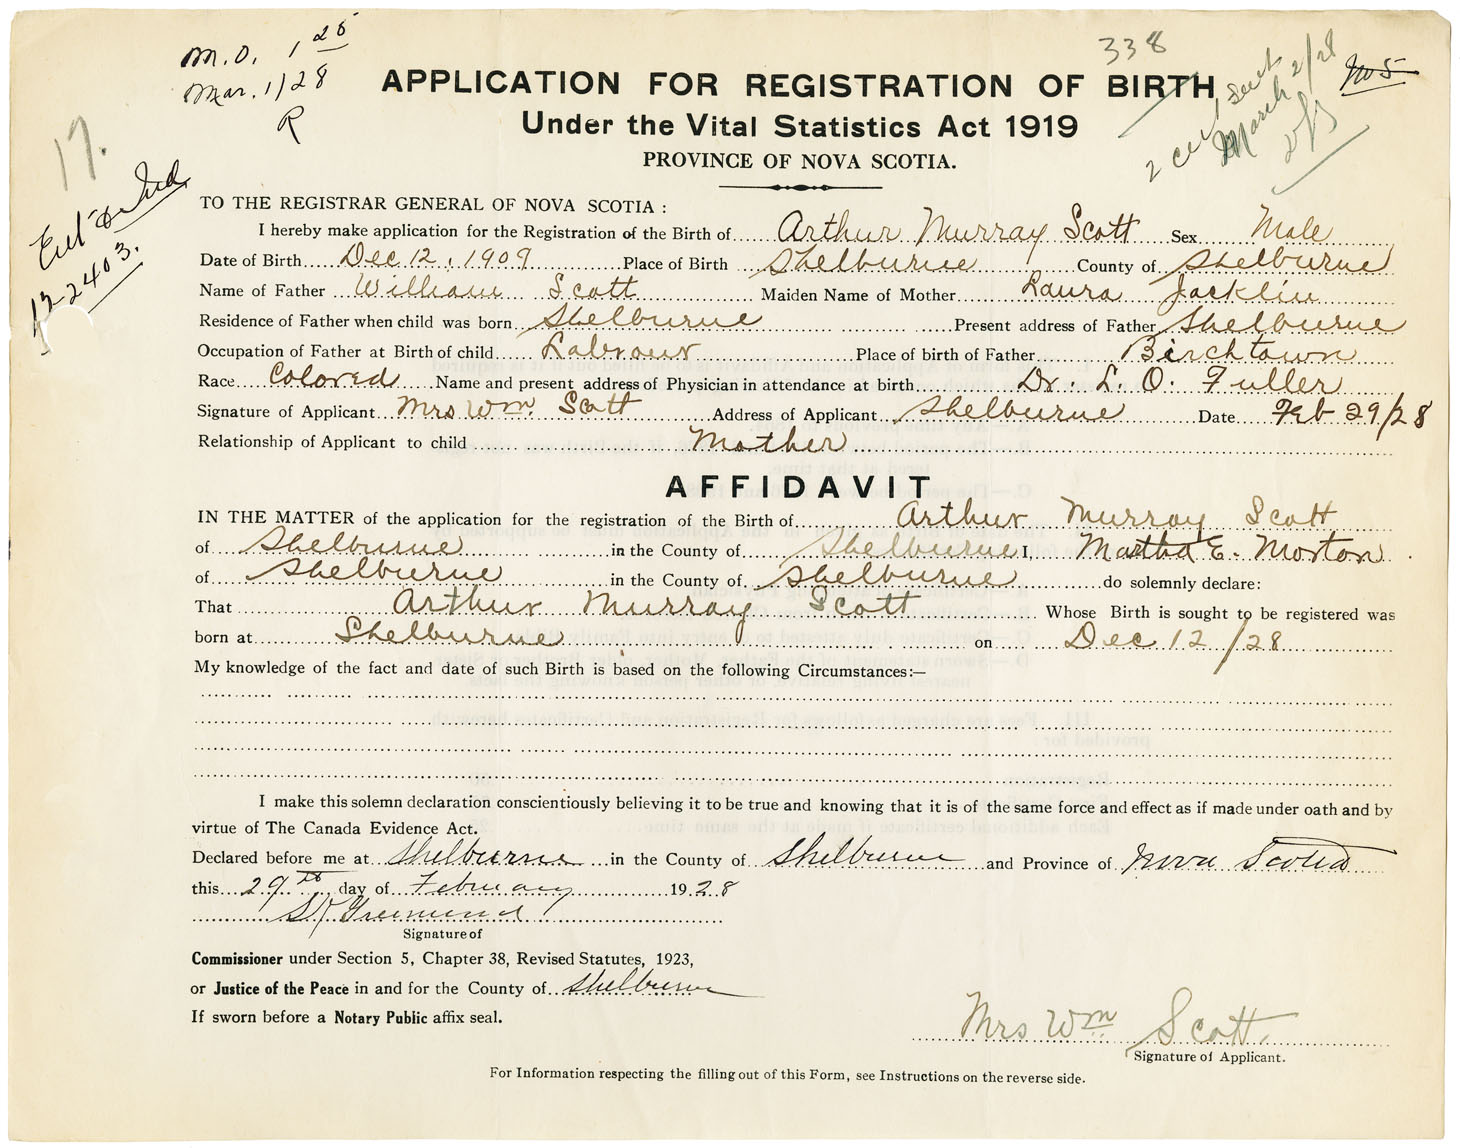 M.O. 1 25
Mar. 1/28
R
17.
338
2 cer
March 2/28
12-2403.
APPLICATION FOR REGISTRATION OF BIRTH
Under the Vital Statistics Act 1919
PROVINCE OF NOVA SCOTIA.
TO THE REGISTRAR GENERAL OF NOVA SCOTIA :
I hereby make application for the Registration of the Birth of Arthur Murray Scott Sex Male
Date of Birth Dec 12, 1909 Place of Birth Shelburne County of Shelburne
Name of Father William Scott Maiden Name of Mother Laura Jacklin
Residence of Father when child was born Shelburne Present address of Father Shelburne
Occupation of Father at Birth of child Labrour Place of birth of Father Birchtown
Race Colored Name and present address of Physician in attendance at birth Dr. L. O. Fuller
Signature of Applicant Mrs Wm. Scott Address of Applicant Shelburne Date Feb 29/28
Relationship of Applicant to child Mother
AFFIDAVIT
IN THE MATTER of the application for the registration of the Birth of Arthur Murray Scott
of Shelburne in the County of Shelburne I, Martha E. Morton
of Shelburne in the County of Shelburne do solemnly declare:
That Arthur Murray Scott Whose Birth is sought to be registered was
born at Shelburne on Dec 12/28
My knowledge of the fact and date of such Birth is based on the following Circumstances:—
I make this solemn declaration conscientiously believing it to be true and knowing that it is of the same force and effect as if made under oath and by
virtue of The Canada Evidence Act.
Declared before me at Shelburne in the County of Shelburne and Province of Nova Scotia
this 29th day of February 1928
Signature of
Commissioner under Section 5, Chapter 38, Revised Statutes, 1923,
or Justice of the Peace in and for the County of Shelburne
If sworn before a Notary Public affix seal.
Mrs Wm Scott.
Signature of Applicant.
For Information respecting the filling out of this Form, see Instructions on the reverse side.